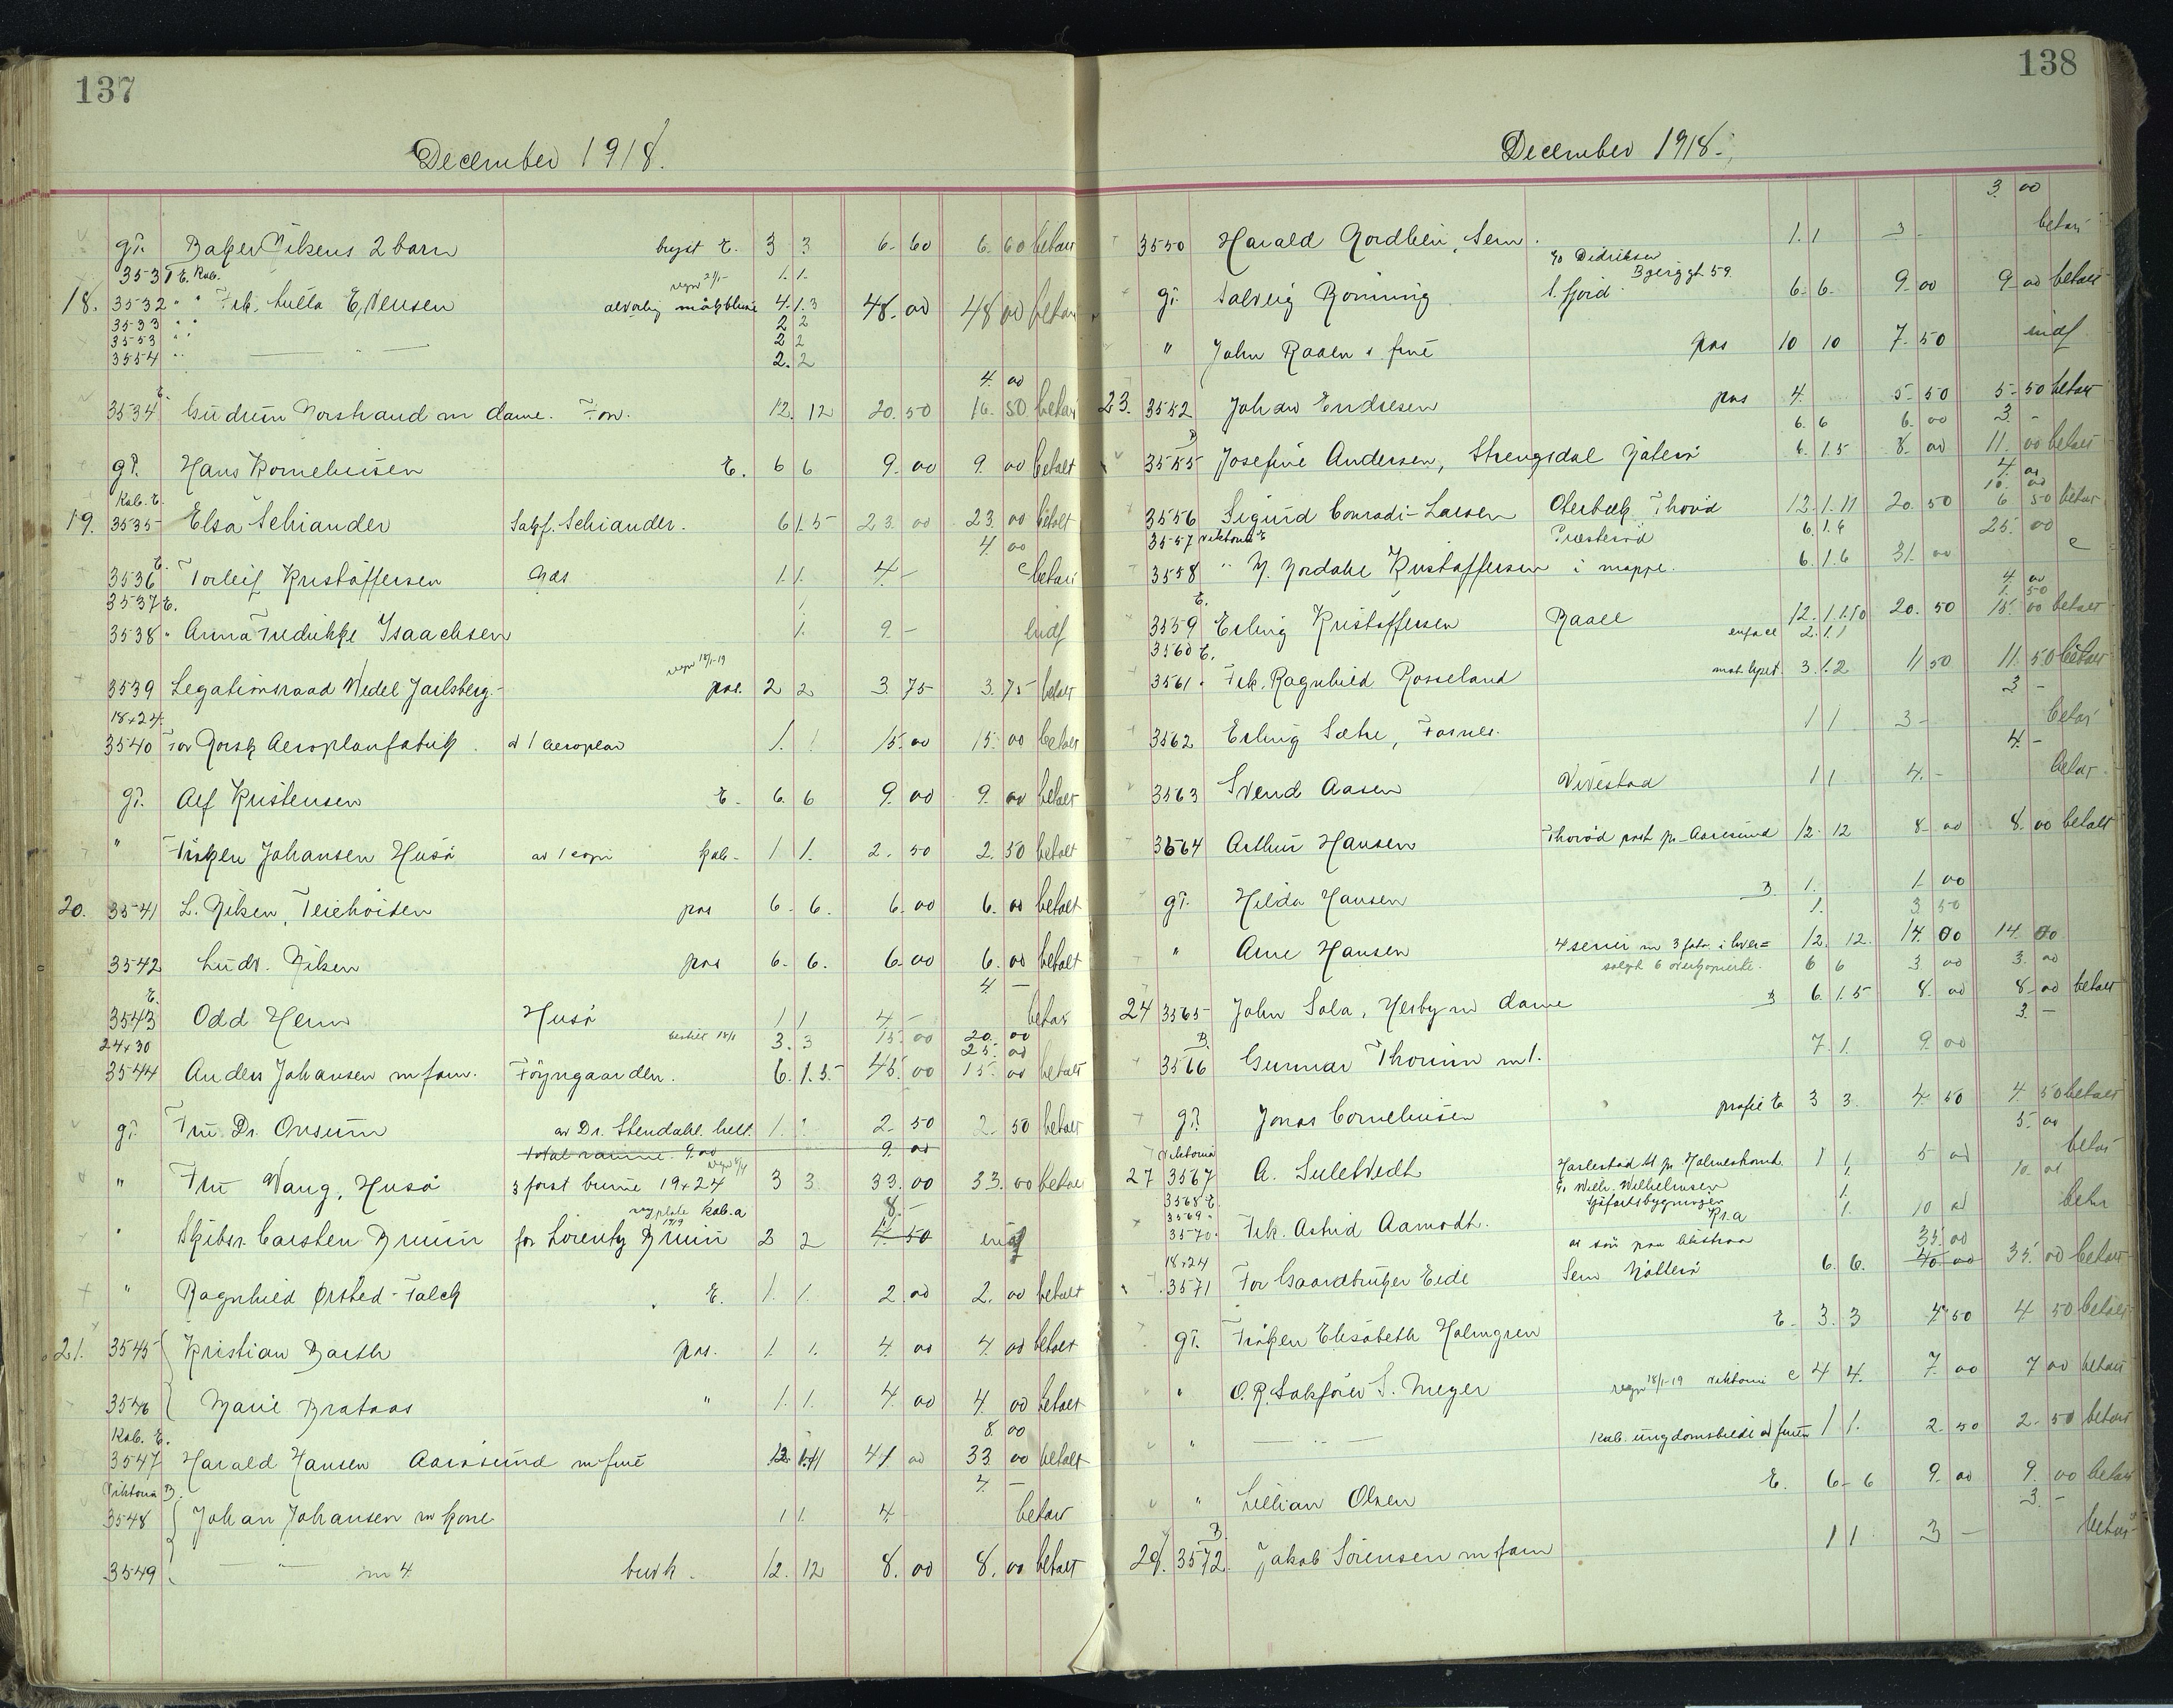 137
December 1918.
gl. Baker Nilsens 2 barn bryst E. 3 3 6.60 6.60 betalt
3531 E. Kab. 1.1.
18. 3532 " " Frk. Lulla E, Vensen alvorlig mørk bluse 4.1.3 48.00 48.00 betalt
3533 " " 2 2
3553 " " 2 2
3554 " " 2.2
4.00
E.
3534 Gudrun Norstrand m dame. Tøn. 12.12 20.50 16.50 betalt
gl. Hans Korneliusen E. 6 6 9.00 9.00 betalt
Kab. E.
19. 3535 Elsa Schiander Sakf. Schiander. 6 1.5 23.00 23.00 betalt
4.00
E.
3536 Torleif Kristoffersen Nøs 1.1. 4.- betalt
3537 E. 1.
3538 " Anna Fredrikke Isaachsen 1. 9.- indf
regn 18/1-19
3539 Legationsraad Wedel Jarlsberg.- pas. 2 2 3.75 3.75 betalt
18x24.
3540 For Norsk Aeroplanfabrik. av 1 aeroplan 1. 1 15.00 15.00 betalt
gl. Alf Kristensen E. 6. 6 9.00 9.00 betalt
" Frøken Johansen Husø av 1 kopi kab- 1 1. 2.50 2.50 betalt
20. 3541 L. Nilsen, Teiehöiden pas 6- 6. 6.00 6.00 betalt
3542 Ludv. Nilsen pas 6- 6. 6.00 6.00 betalt
4.-
E.
3543 Odd Henn Husö 1 1 4.- betalt
24x30 bestilt 18/1 3.3 15.00 20.00
25.00
3544 Anders Johansen m fam. Föyngaarden. 6.1.5- 45.00 15.00 betalt
gl. Fru Dr. Orsum av Dr. Stendahl. hell. 1. 1 2.50 2.50 betalt
9.00
" Fru Wang, Husö 3 först brune 19x24 3 3 33.00 33.00 betalt
ny plate Kab. a 8.-
" Skibsr. Carsten Bruun for Lorentz Bruun 2 2 4.50 indf
" Ragnhild Ørsted-Falck E. 1. 1. 2.00 2.00 betalt
21. 3545 Kristian Barth pas. 1. 1. 4.00 4.00 betalt
3546 Marie Brataas " 1. 1. 4.00 4.00 betalt
Kab. E. 8.00
3547 Harald Hansen Aarøsund m frue 12.1.11 41.00 33.00 betalt
Viktoria B. 4.-
3548 Johan Johansen m kone 1 1. 4.- betalt
3549 - " - m 4. bryst. 12. 12 8.00 8.00 betalt
138
December 1918.
3.00
3550 Harald Nordlien, Sem. 1.1 3.- betalt
co Didriksen
Bjerggt. 59.
gl. Solveig Rönning S. fjord. 6- 6. 9.00 9.00 betalt
" John Raaen s. frue pas 10 10 7.50 indf.
23. 3552 Johan Endresen pas 4. 5.50 5.50 betalt
6.6 6.00 3.-
B
3555 Josefine Andersen, Strengsdal Nøterö 6.1.5 8.00 11.00 betalt
4.00
10.00
3556 Sigurd Conradi-Larsen Oterbæk Thoröd 12.1.11 20.50 6.50 betalt
3557 Viktoria E Præsteröd 6.1.6 25.00
3558 " M. Nordahl Kristoffersen i mappe. 6.1.6 31.00
4.00
1.50
E.
3559 Erling Kristoffersen Raael 12.1.1.10 20.50 15.00 betalt
enface 2.1.1
3560 E.
3561 " Frk. Ragnhild Rosseland mat. lyset. 3.1.2 11.50 11.50 betalt
3.-
3562 Erling Sætre, Fosnes. 1 1 3- betalt
4.-
3563 Svend Aasen Vivestad 1 1 4.- betalt
3564 Arthur Hansen Thoröd post pr Aarösund 12. 12 8.00 8.00 betalt
gl. Hilda Hansen B. 1. 1.00
1. 3.50
" Arne Hansen 4 serier m 3 foto. i hver= 12. 12. 14.00 14.00
6 6 3.00 3.00
24 3565 John Sola, Hesby m dame B 6.1.5 8.00 8.00 betalt
3.-
B.
3566 Gunnar Thorum m 1. 7.1. 9.00
gl. Jonas Corneliusen profil E 3 3. 4.50 4.50 betalt
5.00
Viktoria
27 3567 A. Suletvedt pr. Holmestrand. 1 1 5.00 betalt
3568 E. co Wilh. Wilhelmsen 1. 10.00
3569 " Sjöfartsbygningen 1.
3570 " Frk. Astrid Aamodt. Kr.a 1. 10.00 betalt
18x24 35.00
3571 For Gaardbruker Eide Sem Nötterö 6. 6. 40.00 35.00 betalt
gl. Frøken Elisabeth Holmgren E. 3.3 4.50 4.50 betalt
" O. R. Sakförer S. Meyer regn 18/1-19 viktoria e 4 4. 7.00 7.00 betalt
" - " - Kab. ungdomsbilde av fruen 1 1. 2.50 2.50 betalt
" Lillian Olsen E. 6- 6 9.00 9.00 betalt
3.-
B.
28. 3572. Jakob Sörensen m fam 1 1 3.- betalt